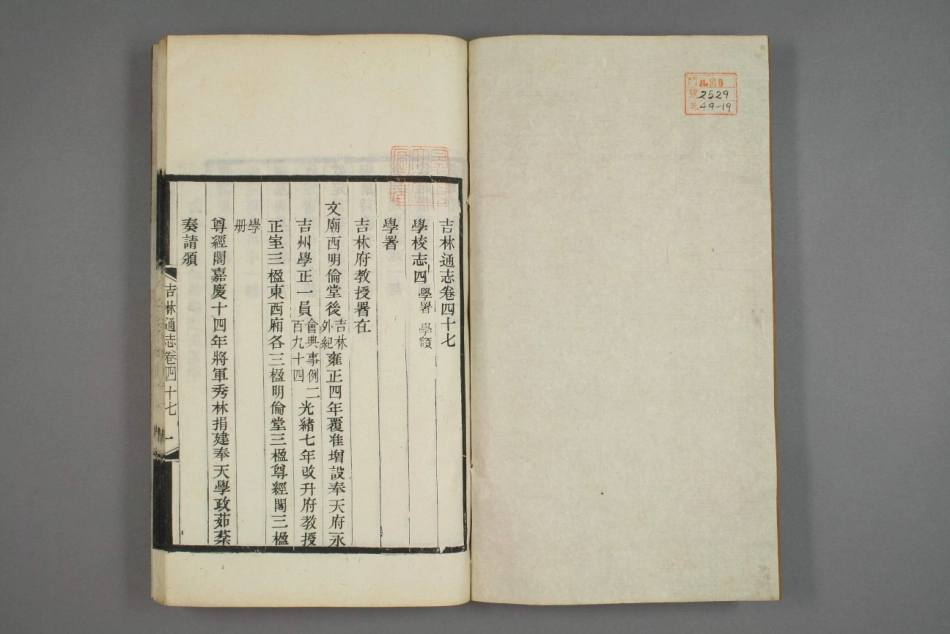 吉林通志卷四十七
學校志四 學署 學額
學署
吉林府教授署在
文廟西明倫堂後 吉林外紀 雍正四年覆准增設奉天府永
吉州學正一員 會典事例二百九十四 光緒七年改升府教授
正室三楹東西廂各三楹明倫堂三楹尊經閣三楹
學冊
尊經閣嘉慶十四年將軍秀林捐建奉天學政茹棻
奏請頒
吉林通志卷四十七 一
2529
49-19